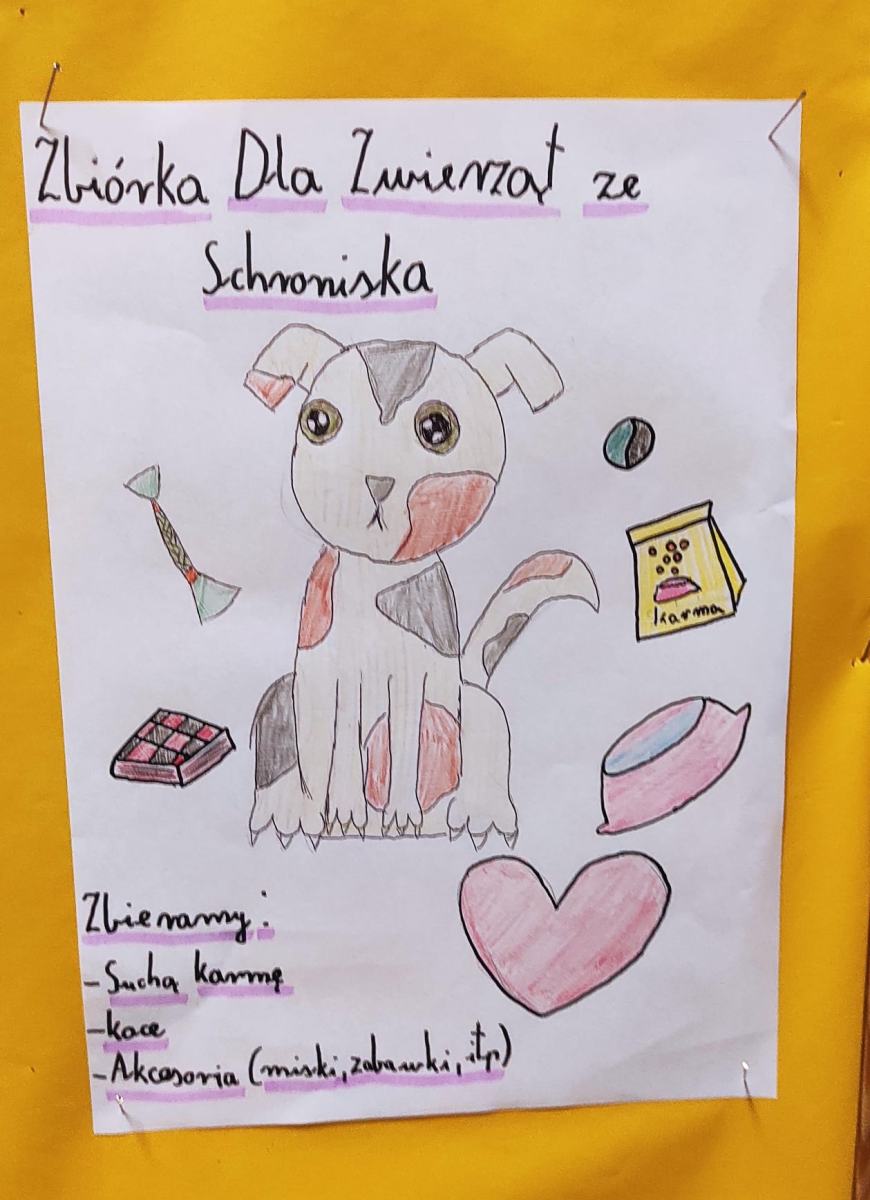 Zbiórka Dla Zwierząt ze
Schroniska
karma
Zbieramy:
-Suchą karmę
-koce
-Akcesoria (miski, zabawki, itp)